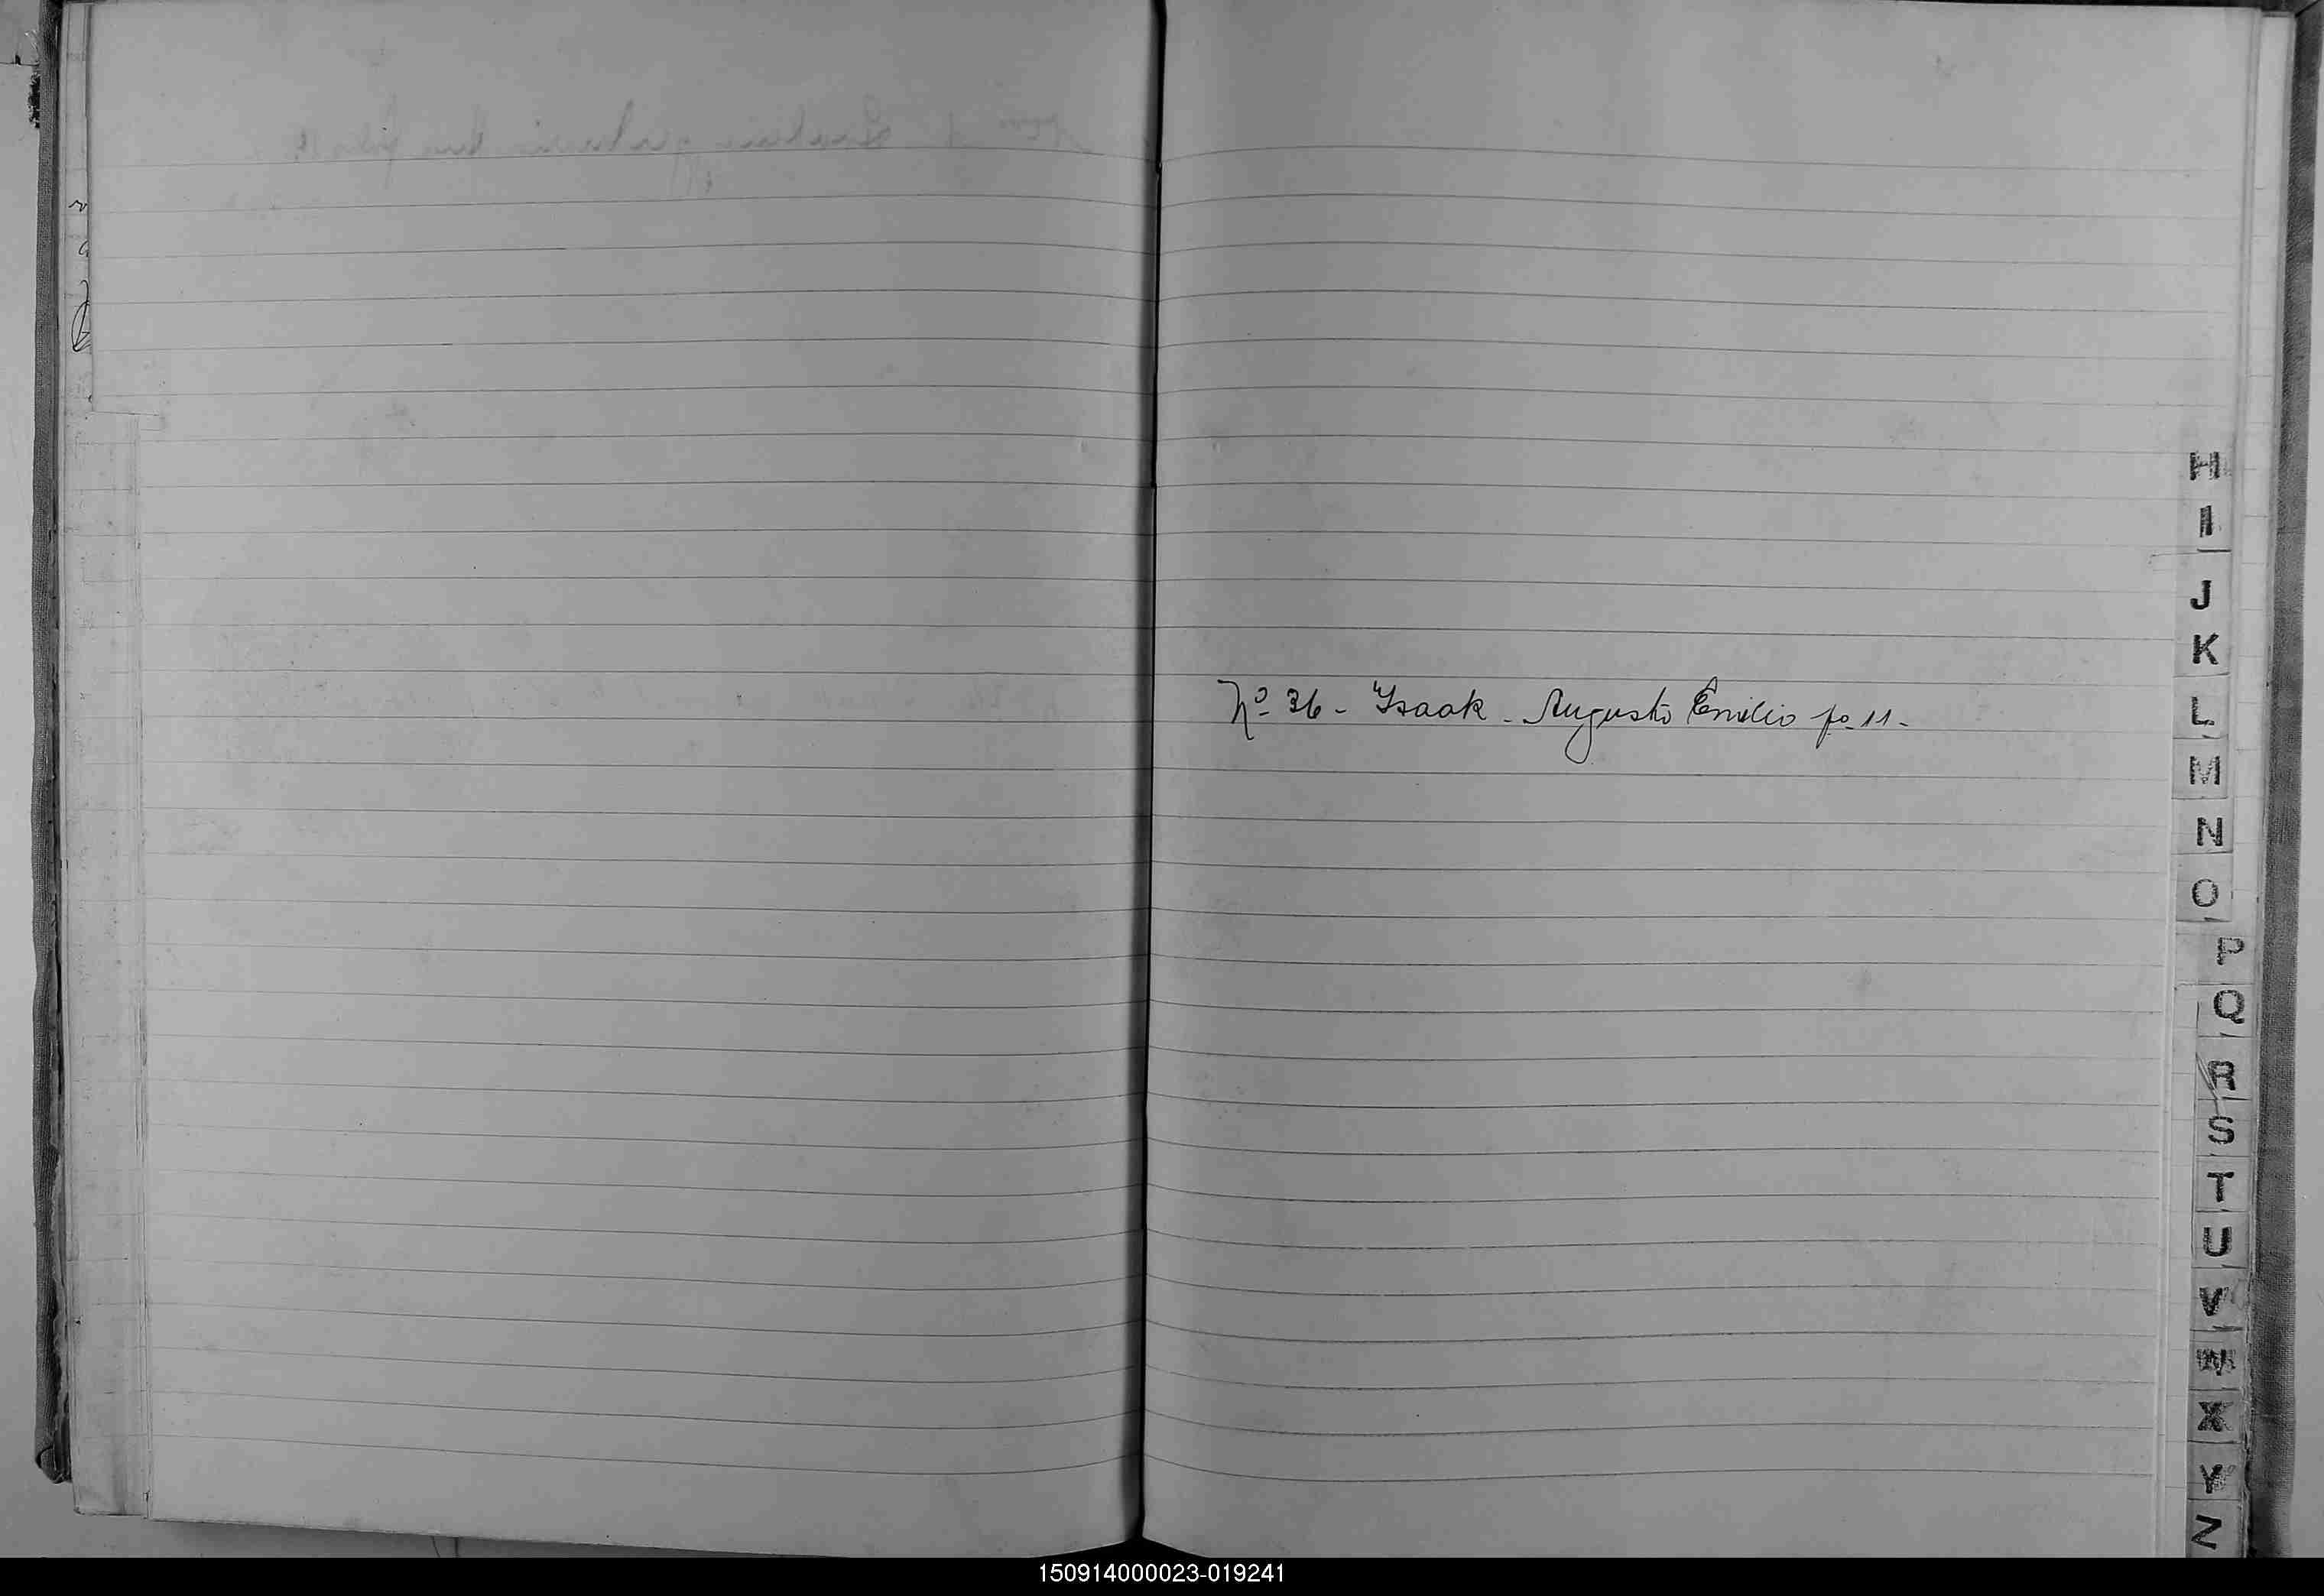 Nº 36 - Isaak - Augusto Emilio fo 11 -
H
I
J
K
L
M
N
O
P
Q
R
S
T
U
V
W
X
Y
Z
150914000023-019241